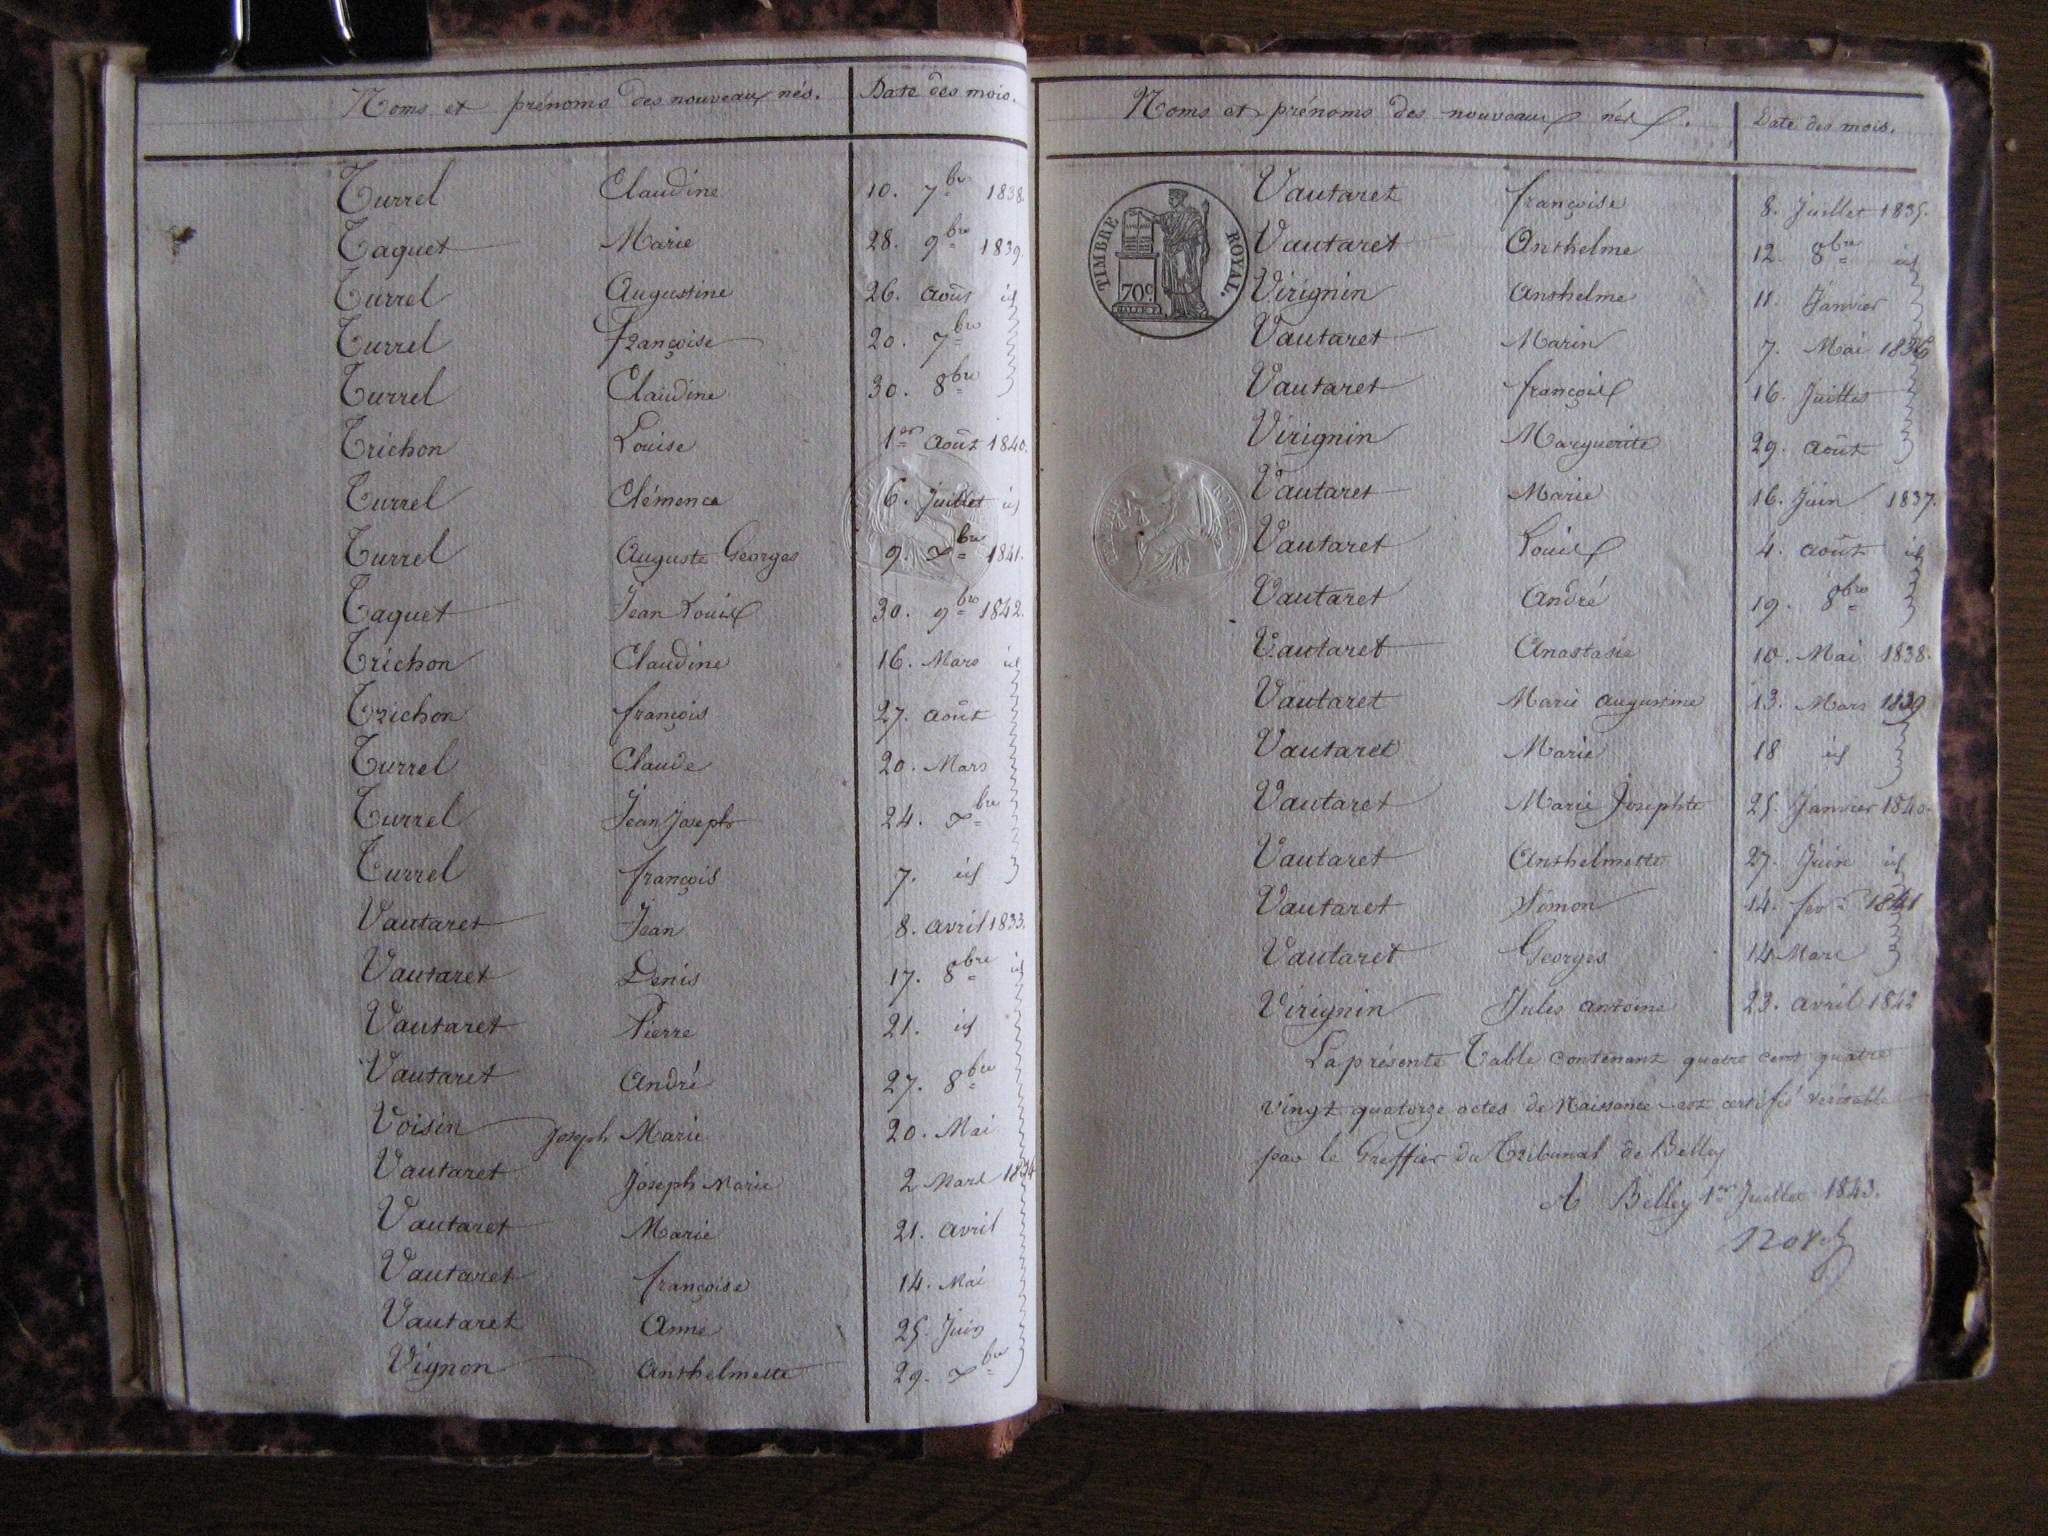 Noms et prénoms des nouveaux nés. Date des mois.
Turrel Claudine 10. 7bre 1838.
Taquet Marie 28. 9bre 1839.
Turrel Augustine 26. août id
Turrel françoise 20. 7bre
Turrel Claudine 30. 8bre
Trichon Louise 1er août 1840.
Turrel Clémence 6. Juillet id
Turrel Auguste Georges 9. Xbre 1841.
Taquet Jean Louis 30. 9bre 1842.
Trichon Claudine 16. Mars id
Trichon françois 27. août
Turrel Claude 20. Mars
Turrel Jean Joseph 24. Xbre
Turrel françois 7. id
Vautaret Jean 8. avril 1833.
Vautaret Denis 17. 8bre id
Vautaret Pierre 21. id
Vautaret André 27. 8bre
Voisin Joseph Marie 20. Mai
Vautaret Joseph Marie 2 Mars 1834
Vautaret Marie 21. avril
Vautaret françoise 14. Mai
Vautaret Anne 25. Juin
Vignon Anthelmette 29. Xbre
Noms et prénoms des nouveaux nés. Date des mois.
TIMBRE ROYAL.
70c.
Vautaret françoise 8. Juillet 1835.
Vautaret Anthelme 12. 8bre id
Virignin Anthelme 11. Janvier
Vautaret Marin 7. Mai 1836
Vautaret françois 16. Juillet
Virignin Marguerite 29. août
Vautaret Marie 16. Juin 1837.
Vautaret Louis 4. août id
Vautaret André 19. 8bre
Vautaret Anastasie 10. Mai 1838.
Vautaret Marie augustine 13. Mars 1839
Vautaret Marie 18 id
Vautaret Marie Josephte 25. Janvier 1840.
Vautaret Anthelmette 27. Juin id
Vautaret Simon 14. fév. 1841
Vautaret Georges 14 Mars
Virignin Jules antoine 23. avril 1842
La présente Table contenant quatre cent quatre
vingt quatorze actes de Naissance est certifié véritable
par le Greffier du Tribunal de Belley
A Belley 1er Juillet 1843.